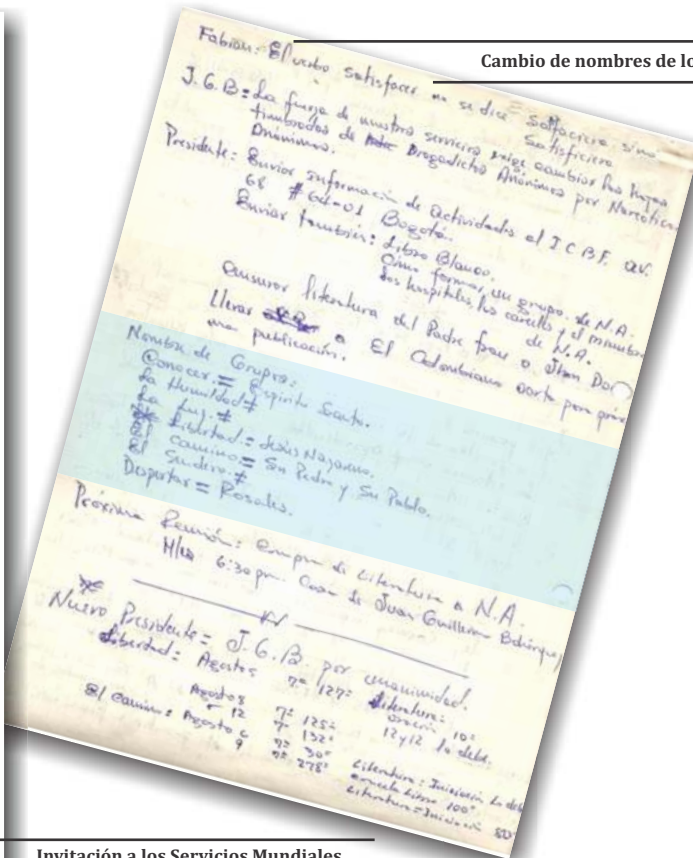 Cambio de nombres de lo
Fabian: El verbo satisfacer no se dice = satfaciera sino
Satisficiera
J.G.B = La fuerza de nuestro servicio exige cambiar las hojas
timbradas de Drogadictos Anónimos por Narcóticos
Anónimos.
Presidente: Enviar información de actividades al I.C.B.F. av.
68 # 64-01 Bogotá.
Enviar también: Libro Blanco.
Cómo formar un grupo de N.A.
Los hospitales, las carceles y el miembro
de N.A.
Censurar literatura del Padre
Llevar a El Colombiano carta para
una publicación.
Nombre de Grupos:
Conocer = Espiritu Santo.
La Humildad ≠
La Luz. ≠
Libertad. = Jesús Nazareno.
El Camino = Sn Pedro y Sn Pablo.
El Sendero. ≠
Despertar = Rosales.
Próxima Reunión: Compra de Literatura a N.A.
6:30 pm. Casa de Juan Guillermo
Nuevo Presidente = J.G.B. por unanimidad.
Libertad: Agosto 5 7ª 127= Literatura:
Agosto 8 7ª 125= oración 10=
12 7ª 132= 12 y 12 lo debe.
El Camino: Agosto 6 7ª 30= Literatura: Iniciación Lo debe
9 7ª 278= Libro 100=
Literatura = Iniciación
Invitación a los Servicios Mundiales